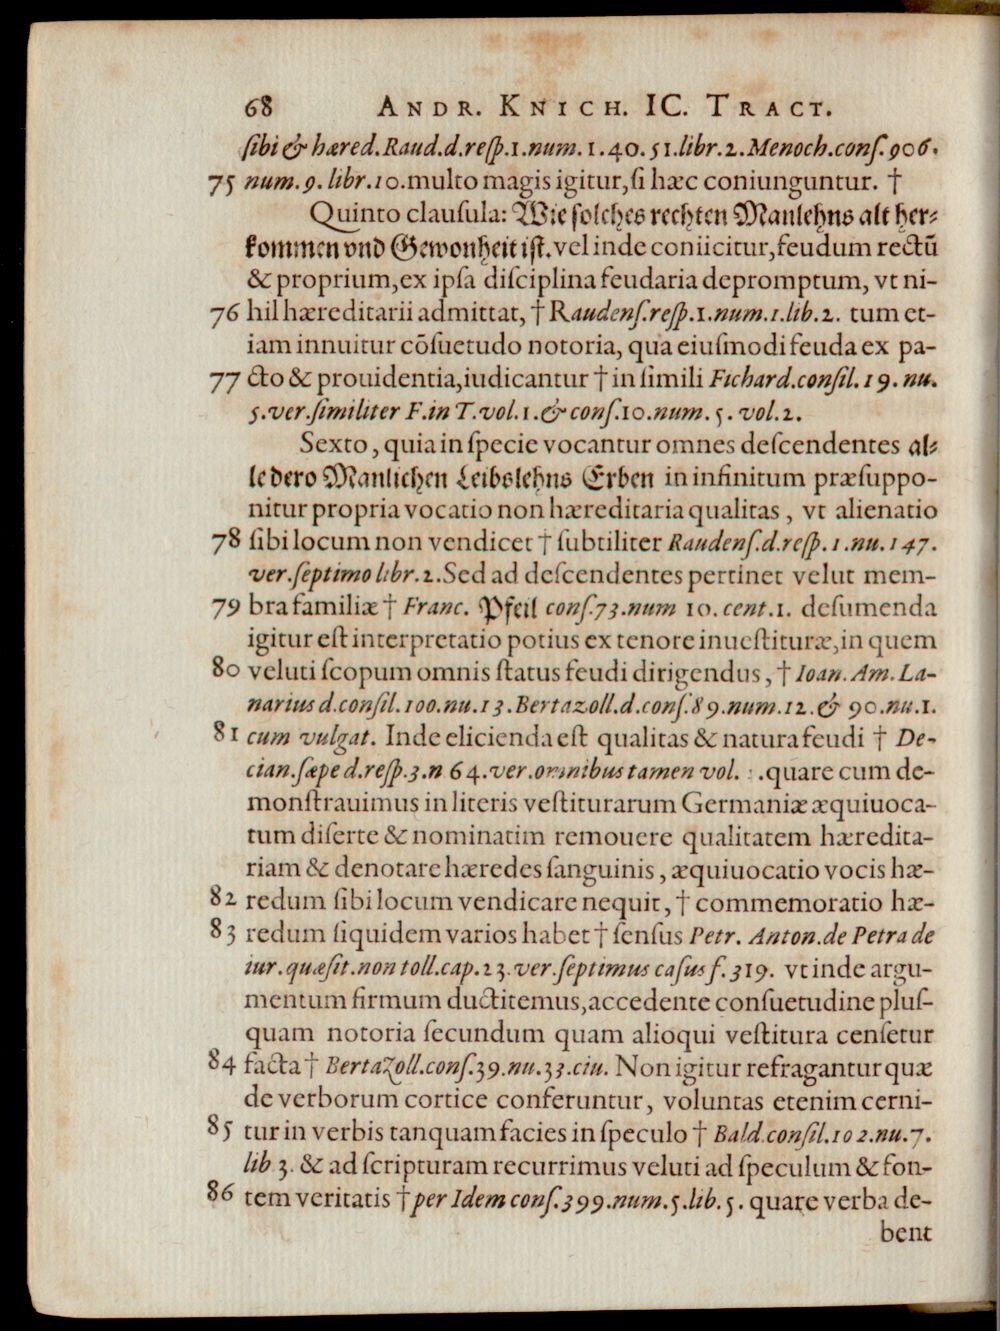 68 ANDR. KNICH. IC. TRACT.
ſibi & hæred. Raud. d. reſp. 1. num. 1. 40. 51. libr. 2. Menoch. conſ. 906.
75 num. 9. libr. 10. multo magis igitur, ſi hæc coniunguntur. †
Quinto clauſula: Wie ſolches rechten Manlehns alt her⸗
kommen vnd Gewonheit iſt. vel inde coniicitur, feudum rectũ
& proprium, ex ipſa diſciplina feudaria depromptum, vt ni-
76 hil hæreditarii admittat, † Raudenſ. reſp. 1. num. 1. lib. 2. tum et-
iam innuitur cõſuetudo notoria, qua eiuſmodi feuda ex pa-
77 cto & prouidentia, iudicantur † in ſimili Fichard. conſil. 19. nu.
5. ver. ſimiliter F. in T. vol. 1. & conſ. 10. num. 5. vol. 2.
Sexto, quia in ſpecie vocantur omnes deſcendentes al⸗
le dero Manlichen Leibslehns Erben in infinitum præſuppo-
nitur propria vocatio non hæreditaria qualitas, vt alienatio
78 ſibi locum non vendicet † ſubtiliter Raudenſ. d. reſp. 1. nu. 147.
ver. ſeptimo libr. 2. Sed ad deſcendentes pertinet velut mem-
79 bra familiæ † Franc. Pfeil conſ. 73. num 10. cent. 1. deſumenda
igitur eſt interpretatio potius ex tenore inueſtituræ, in quem
80 veluti ſcopum omnis ſtatus feudi dirigendus, † Ioan. Am. La-
narius d. conſil. 100. nu. 13. Bertazoll. d. conſ. 89. num. 12. & 90. nu. 1.
81 cum vulgat. Inde elicienda eſt qualitas & natura feudi † De-
cian. ſæpe d. reſp. 3. n 64. ver. omnibus tamen vol. . quare cum de-
monſtrauimus in literis veſtiturarum Germaniæ æquiuoca-
tum diſerte & nominatim remouere qualitatem hæredita-
riam & denotare hæredes ſanguinis, æquiuocatio vocis hæ-
82 redum ſibi locum vendicare nequit, † commemoratio hæ-
83 redum ſiquidem varios habet † ſenſus Petr. Anton. de Petra de
iur. quæſit. non toll. cap. 23. ver. ſeptimus caſus f. 319. vt inde argu-
mentum firmum ductitemus, accedente conſuetudine pluſ-
quam notoria ſecundum quam alioqui veſtitura cenſetur
84 facta † Bertazoll. conſ. 39. nu. 33. ciu. Non igitur refragantur quæ
de verborum cortice conferuntur, voluntas etenim cerni-
85 tur in verbis tanquam facies in ſpeculo † Bald. conſil. 102. nu. 7.
lib 3. & ad ſcripturam recurrimus veluti ad ſpeculum & fon-
86 tem veritatis † per Idem conſ. 399. num. 5. lib. 5. quare verba de-
bent